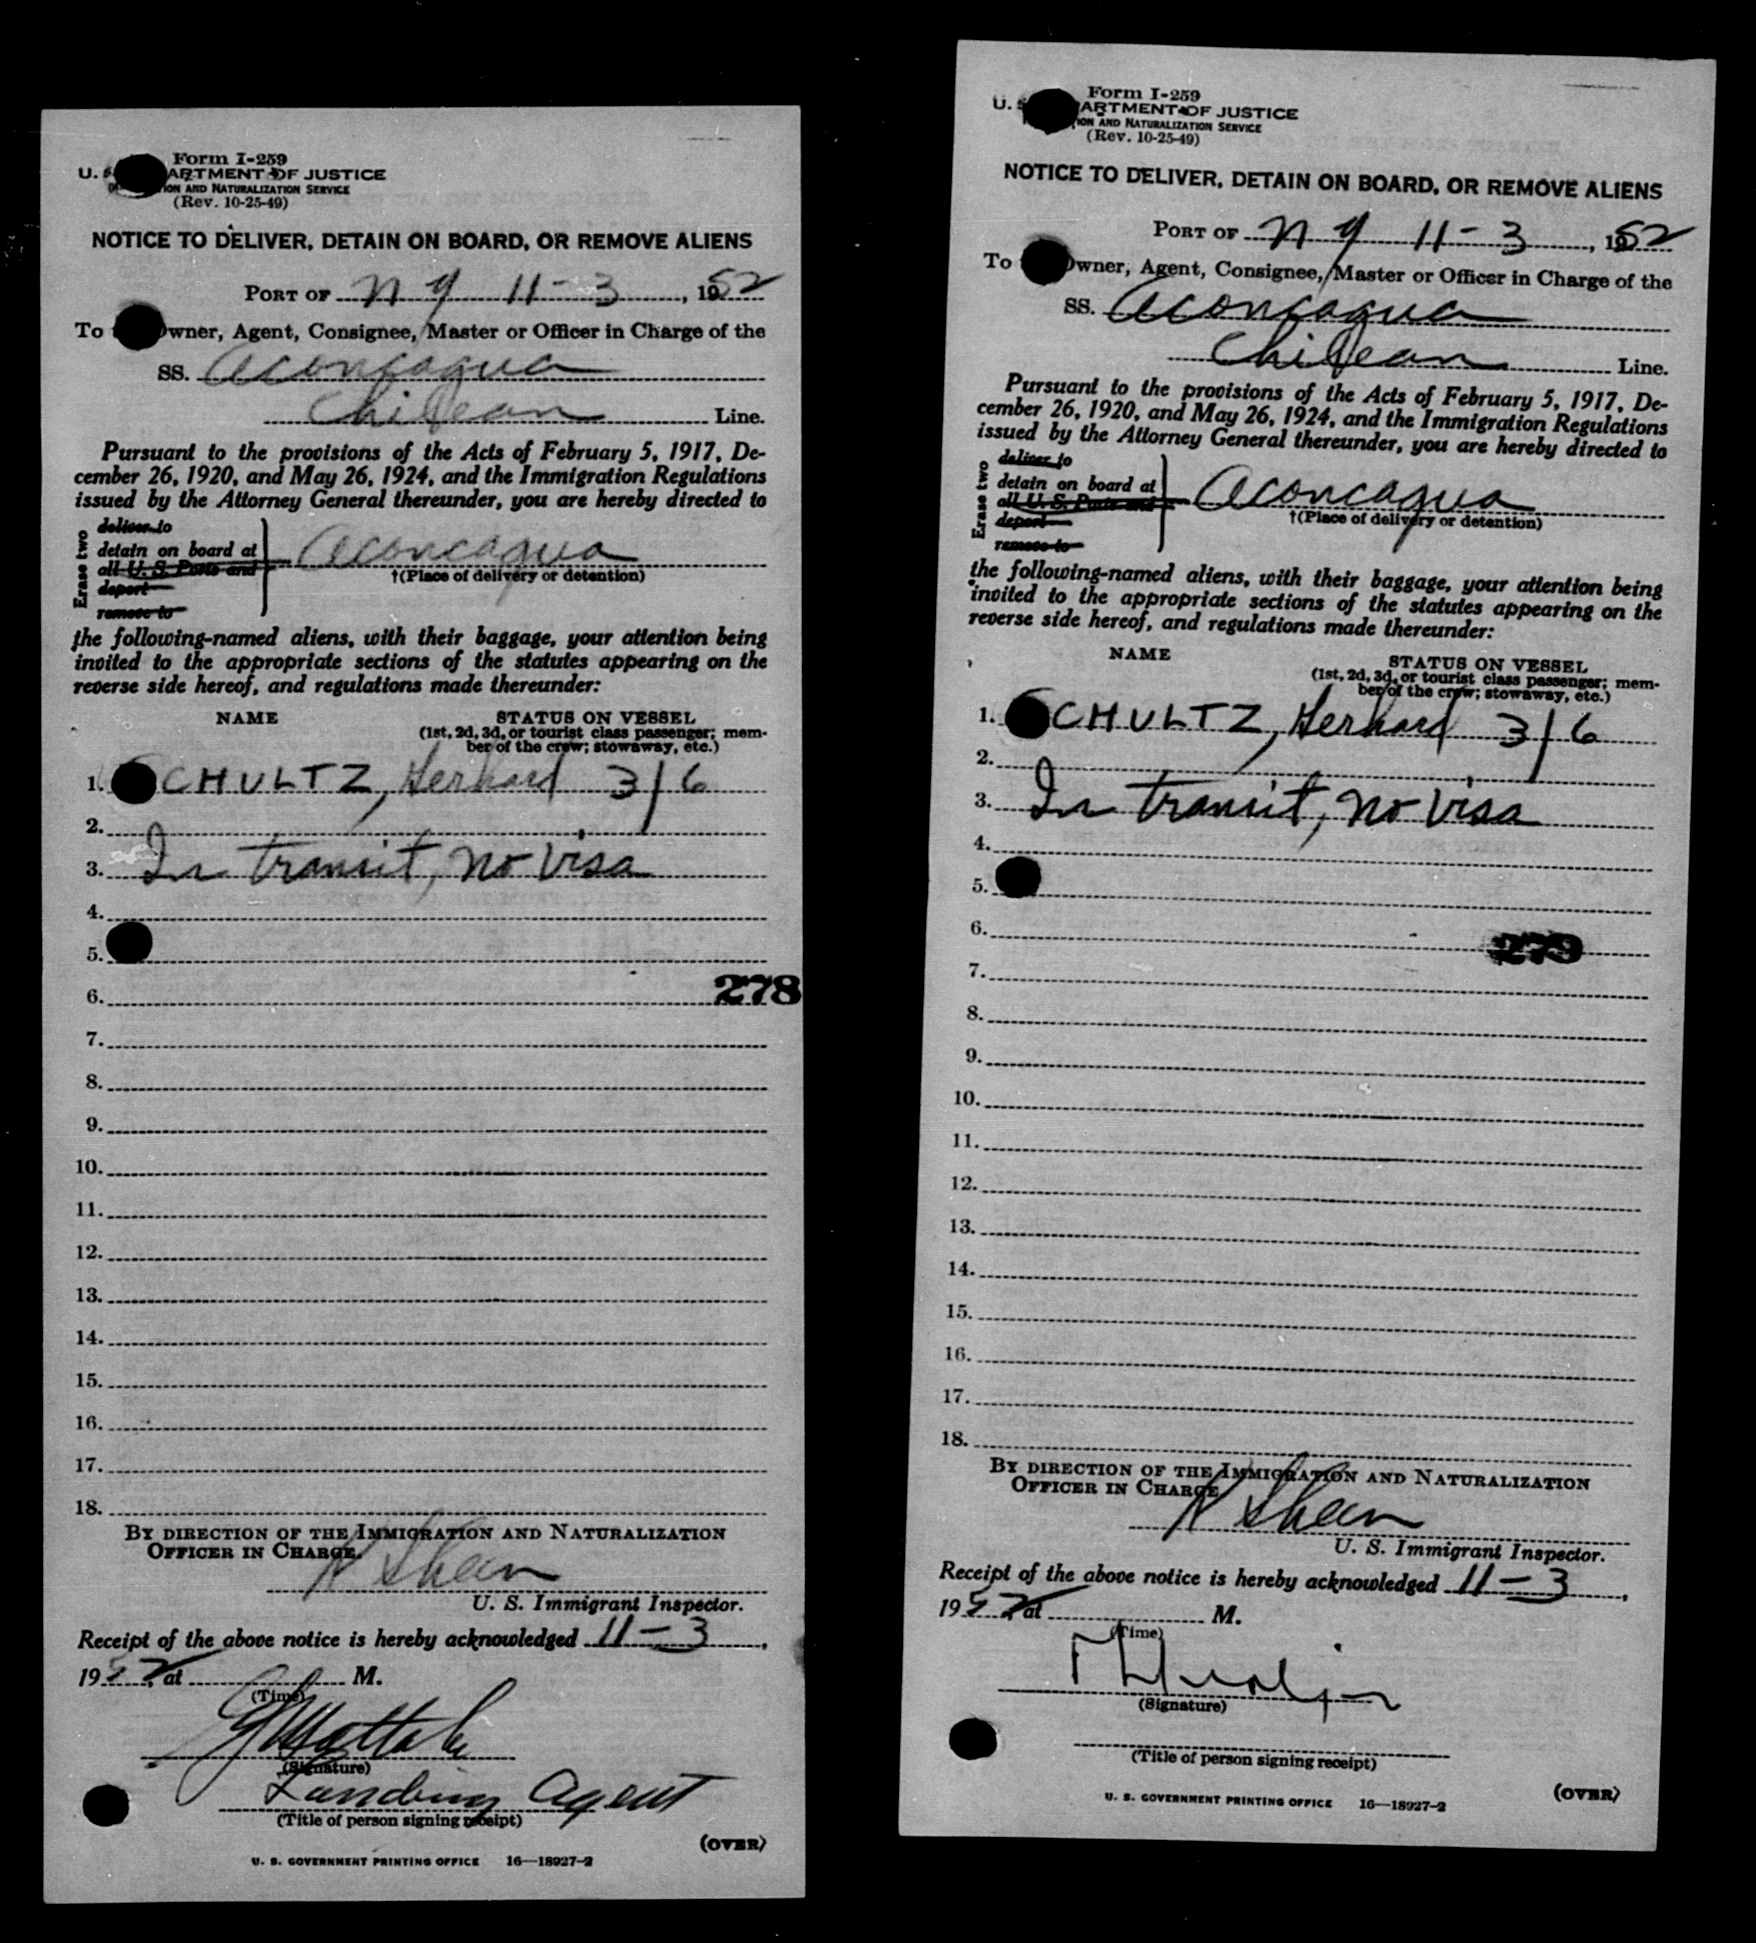 Form I-259
U. S. ARTMENT OF JUSTICE
ION AND NATURALIZATION SERVICE
(Rev. 10-25-49)
NOTICE TO DELIVER, DETAIN ON BOARD, OR REMOVE ALIENS
PORT OF N Y 11-3, 1952
To Owner, Agent, Consignee, Master or Officer in Charge of the
SS. Aconcagua
Chilean Line.
Pursuant to the provisions of the Acts of February 5, 1917, De-
cember 26, 1920, and May 26, 1924, and the Immigration Regulations
issued by the Attorney General thereunder, you are hereby directed to
Erase two
deliver to
detain on board at
all U. S. Ports and
deport
remove to
Aconcagua
†(Place of delivery or detention)
the following-named aliens, with their baggage, your attention being
invited to the appropriate sections of the statutes appearing on the
reverse side hereof, and regulations made thereunder:
NAME STATUS ON VESSEL
(1st, 2d, 3d, or tourist class passenger; mem-
ber of the crew; stowaway, etc.)
1. SCHULTZ, Gerhard 3/6
2.
3. In transit, no visa
4.
5.
6. 278
7.
8.
9.
10.
11.
12.
13.
14.
15.
16.
17.
18.
BY DIRECTION OF THE IMMIGRATION AND NATURALIZATION
OFFICER IN CHARGE.
N Sheen
U. S. Immigrant Inspector.
Receipt of the above notice is hereby acknowledged 11-3,
1952, at M.
(Time)
(Signature)
Landing Agent
(Title of person signing receipt)
(OVER)
U. S. GOVERNMENT PRINTING OFFICE 16—18927-2
Form I-259
U. S. ARTMENT OF JUSTICE
ION AND NATURALIZATION SERVICE
(Rev. 10-25-49)
NOTICE TO DELIVER, DETAIN ON BOARD, OR REMOVE ALIENS
PORT OF N Y 11-3, 1952
To Owner, Agent, Consignee, Master or Officer in Charge of the
SS. Aconcagua
Chilean Line.
Pursuant to the provisions of the Acts of February 5, 1917, De-
cember 26, 1920, and May 26, 1924, and the Immigration Regulations
issued by the Attorney General thereunder, you are hereby directed to
Erase two
deliver to
detain on board at
all U. S. Ports and
deport
remove to
Aconcagua
†(Place of delivery or detention)
the following-named aliens, with their baggage, your attention being
invited to the appropriate sections of the statutes appearing on the
reverse side hereof, and regulations made thereunder:
NAME STATUS ON VESSEL
(1st, 2d, 3d, or tourist class passenger; mem-
ber of the crew; stowaway, etc.)
1. SCHULTZ, Gerhard 3/6
2.
3. In transit, no visa
4.
5.
6. 279
7.
8.
9.
10.
11.
12.
13.
14.
15.
16.
17.
18.
BY DIRECTION OF THE IMMIGRATION AND NATURALIZATION
OFFICER IN CHARGE
N Sheen
U. S. Immigrant Inspector.
Receipt of the above notice is hereby acknowledged 11-3,
1952, at M.
(Time)
(Signature)
(Title of person signing receipt)
(OVER)
U. S. GOVERNMENT PRINTING OFFICE 16—18927-2